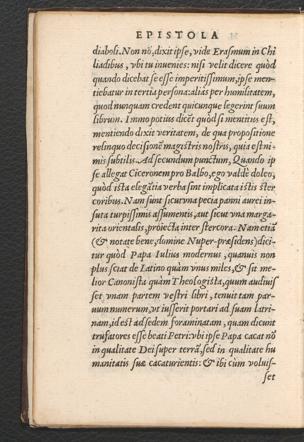 EPISTOLA
diaboli. Non nõ, dixit ipse, vide Erasmum in Chi
liadibus, vbi tu inuenies: nisi velit dicere quòd
quando dicebat se esse imperitissimum, ipse men-
tiebatur in tertia persona: aliàs per humilitatem,
quod nunquam credent quicunque legerint suum
librum. Immo potius dicẽt quòd si mentitus est,
mentiendo dixit veritatem, de qua propositione
relinquo decisionẽ magistris nostris, quia est ni-
mis subtilis. Ad secundum punctum, Quando ip
se allegat Ciceronem pro Balbo, ego valdè doleo,
quòd ista elegãtia verba sint implicata istis ster
coribus. Nam sunt sicut vna pecia panni aurei in-
suta turpissimis assumentis, aut sicut vna marga-
rita orientalis, proiecta inter stercora. Nam etiã
(& notate bene, domine Nuper-præsidens) dici-
tur quòd Papa Iulius modernus, quanuis non
plus sciat de Latino quàm vnus miles, & sit me-
lior Canonista quàm Theologista, quum audiuis
set vnam partem vestri libri, tenuit tam par-
uum numerum, vt iusserit portari ad suam latri-
nam, id est ad sedem foraminatam, quam dicunt
trufatores esse beati Petri: vbi ipse Papa cacat nõ
in qualitate Dei super terrã, sed in qualitate hu
manitatis suæ cacaturientis: & ibi cùm voluis-
set